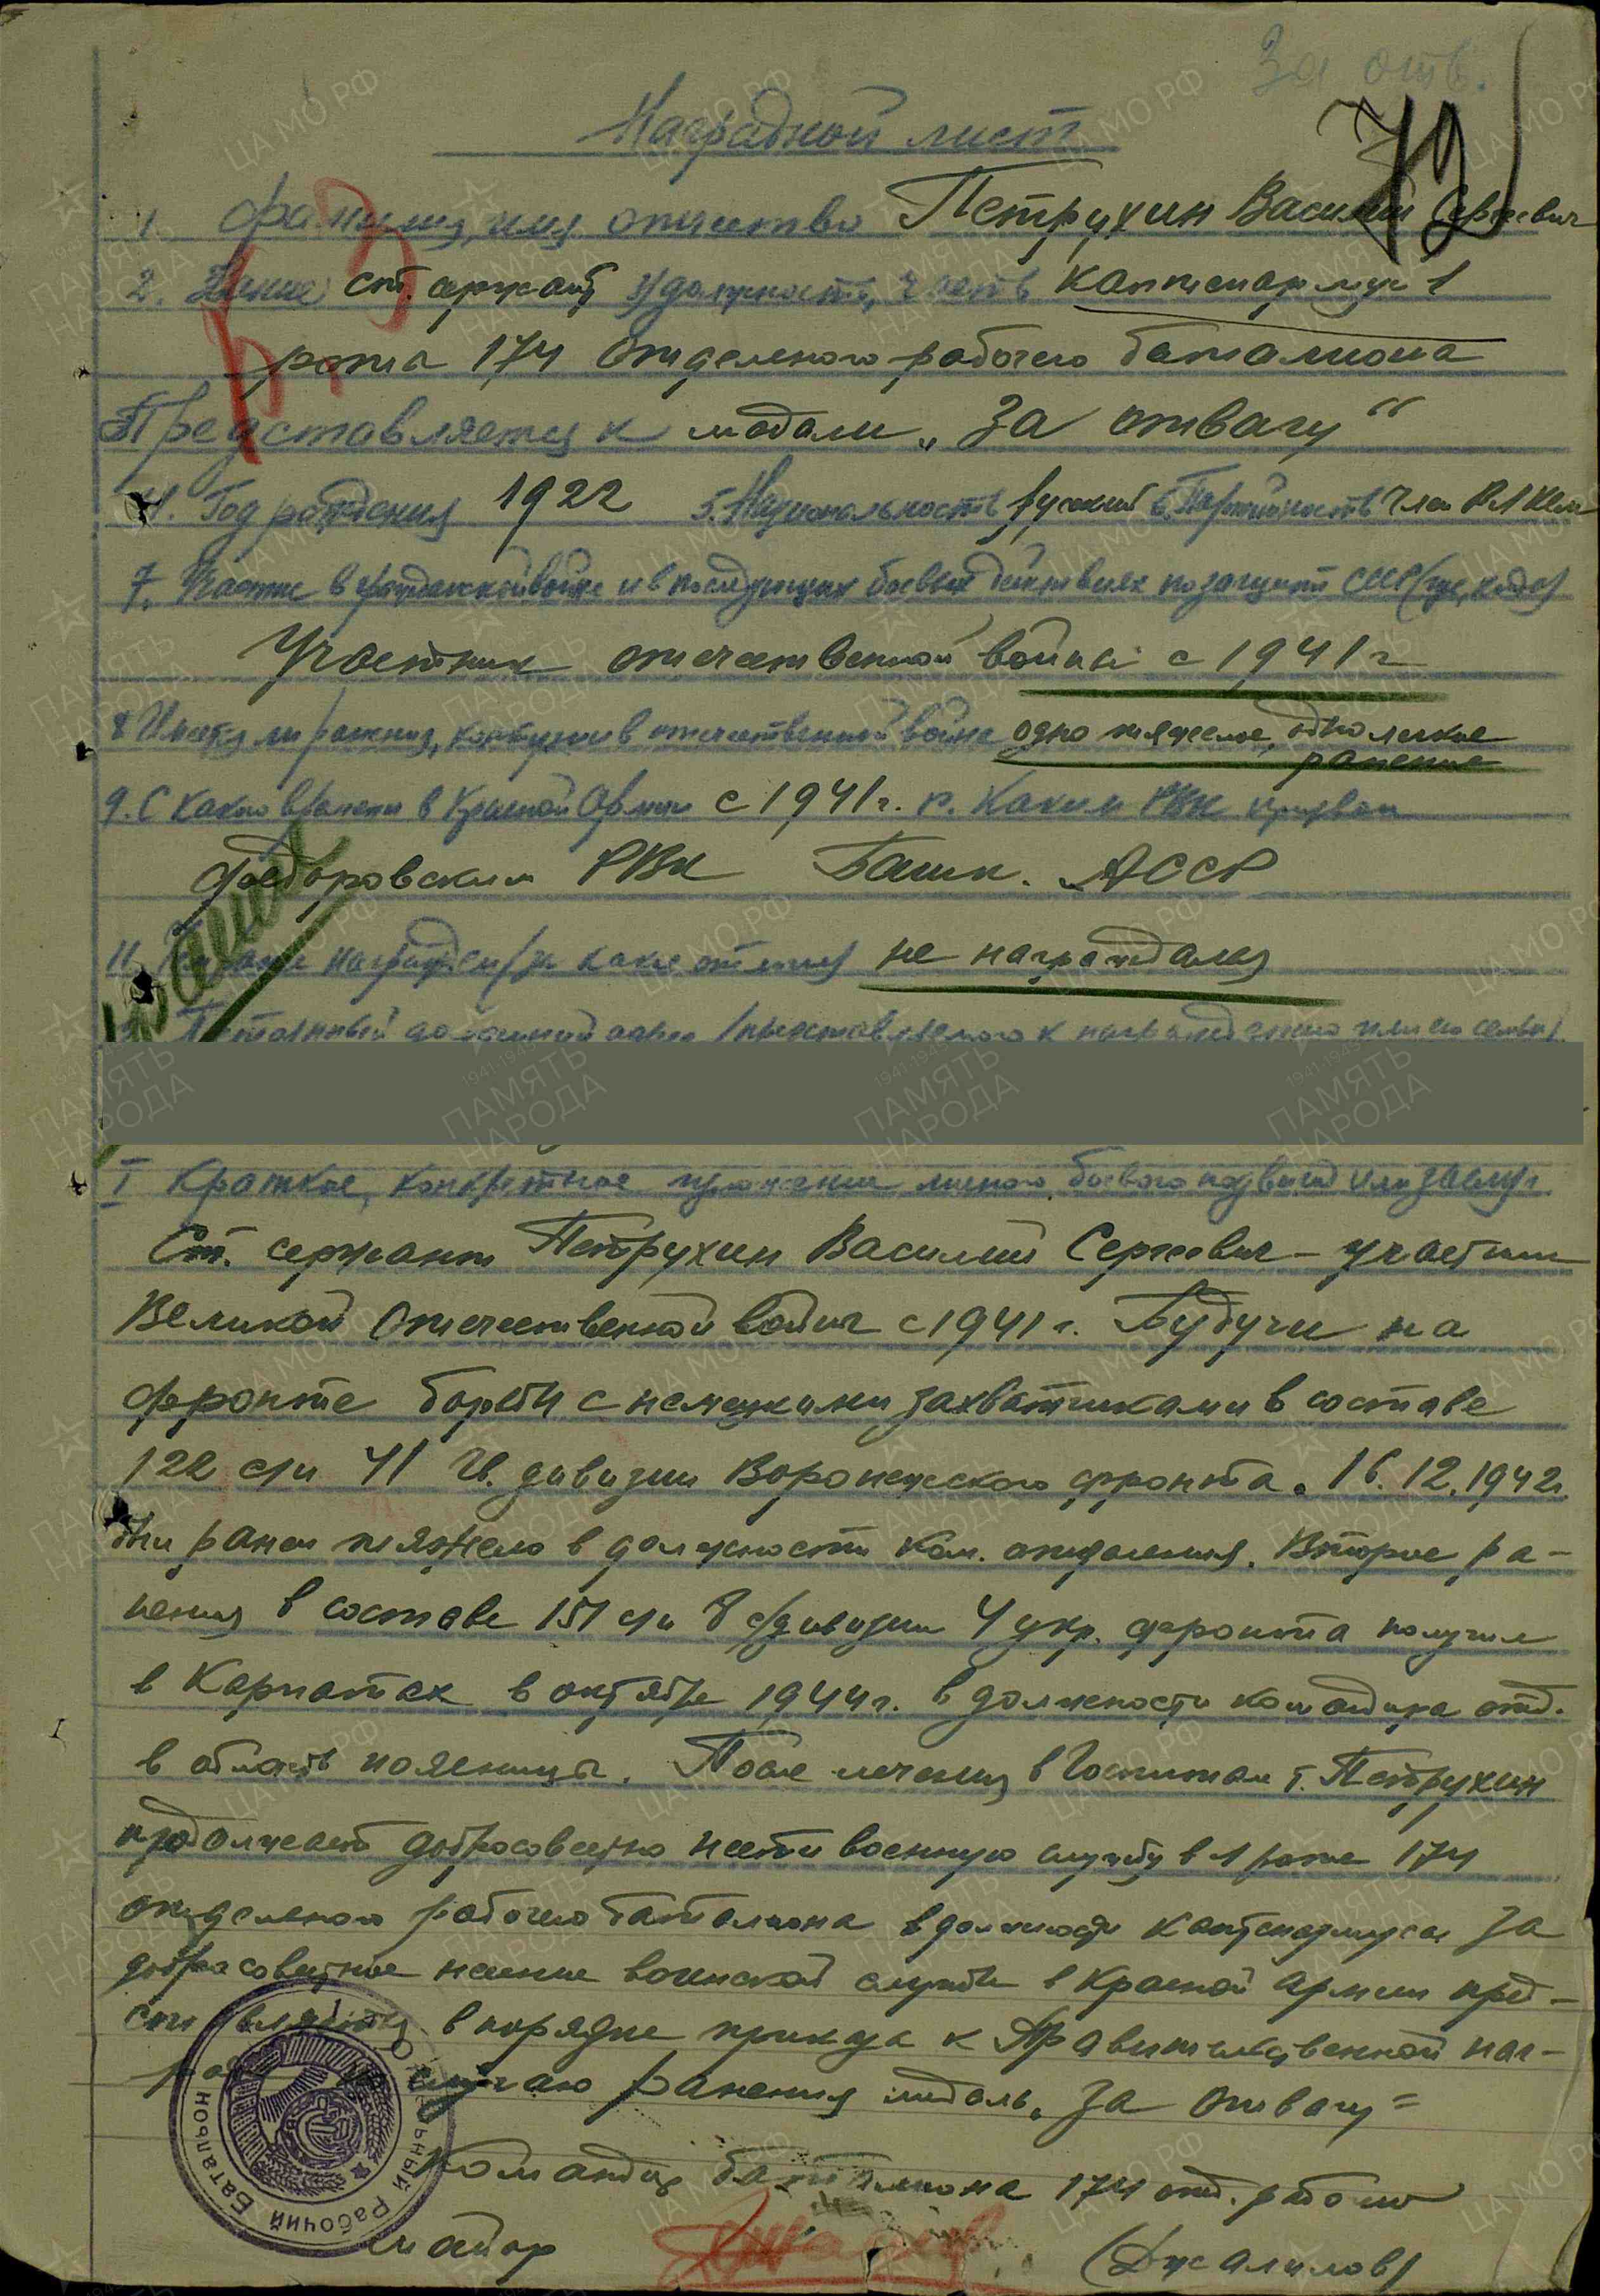 За отв.
72
Наградной лист
1. Фамилия, имя отчество Петрухин Василий Сергеевич
2. Звание ст. сержант 3) должность, часть каптенармус 1
рота 174 отделеного рабочего баталиона
Представляется к медали „За отвагу“
4. Год рождения 1922 5. Национальность русский 6. Партийность член ВЛКСМ
7. Участие в гражданской войне и в последующих боевых действиях по защите СССР (где, когда)
Участник отечественной войны с 1941 г
8 Имеет ли ранения, контузии в отечественной войне одно тяжелое, одно легкое
ранение
9. С какого времени в Красной Армии с 1941 г. 10. Каким РВК призван
Федоровским РВК Башк. АССР
11. Чем ранее награжден (за какие отличия) не награждался
Постоянный домашний адрес (представляемого к награждению или его семьи)
I Краткое, конкретное изложение личного боевого подвига или заслуг
Ст. сержант Петрухин Василий Сергеевич – участник
Великой Отечественной войны с 1941 г. Будучи на
фронте борьбы с немецкими захватчиками в составе
122 с/п 41 Гв. дивизии Воронежского фронта. 16.12.1942г.
был ранен тяжело в должности ком. отделения. Второе ра-
нения в составе 151 с/п 8 с/дивизии 4 укр. фронта получил
в Карпатах в октябре 1944 г. в должности командира отд.
в область поясницы. После лечения в Госпитале т. Петрухин
продолжает добросовестно нести военную службу в 1 роте 174
отделеного рабочего баталиона в должности каптенармуса За
добросовестное несение воинской службы в Красной армии пред-
ставляется в порядке приказа к Правительственной наг-
раде по случаю ранения медаль „За Отвагу“
Командир баталиона 174 отд. рабочего
майор (Джалилов)
Отдельный Рабочий Батальон